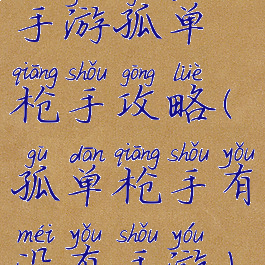 手游孤单
qiāng shǒu gōng lüè
枪手攻略(
gū dān qiāng shǒu yǒu
孤单枪手有
méi yǒu shǒu yóu
没有手游)